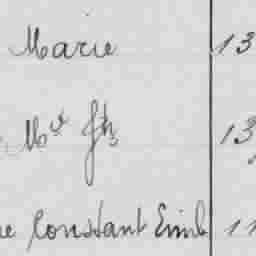 Marie 13
Mce Jh 13
re Constant Emile 11